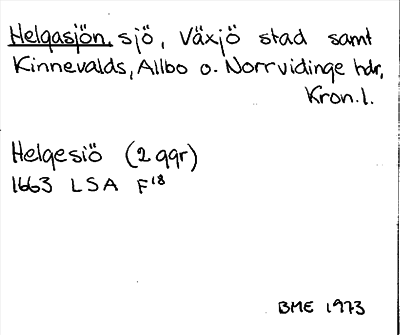 Helgasjön, sjö, Växjö stad samt
Kinnevalds, Allbo o. Norrvidinge hdr,
Kron. l.
Helgesiö (2 ggr)
1663 LSA F18
BME 1973